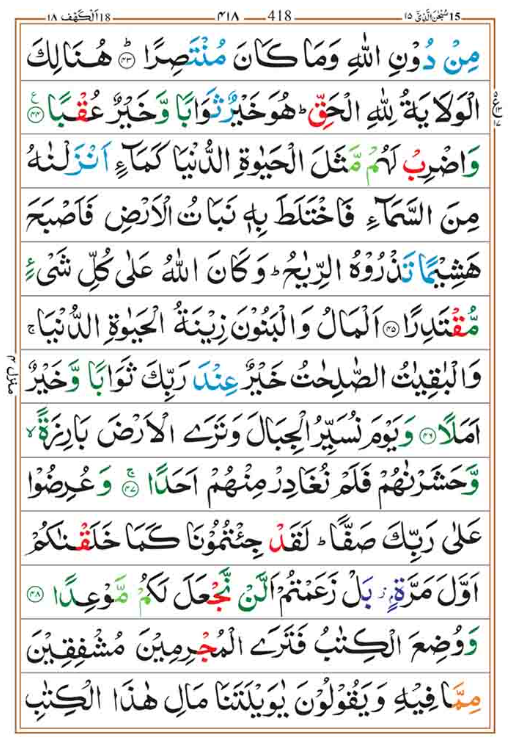 15 سُبْحٰنَ الَّذِیْۤ ۱۵ ۴۱۸ 418 18 اَلْكَهْف ۱۸
مِنْ دُوْنِ اللّٰهِ وَمَا كَانَ مُنْتَصِرًا ؕ ۴۳ هُنَالِكَ
الْوَلَایَةُ لِلّٰهِ الْحَقِّ ؕ هُوَ خَیْرٌ ثَوَابًا وَّ خَیْرٌ عُقْبًا ۴۴
وَاضْرِبْ لَهُمْ مَّثَلَ الْحَیٰوةِ الدُّنْیَا كَمَآءٍ اَنْزَلْنٰهُ
مِنَ السَّمَآءِ فَاخْتَلَطَ بِهٖ نَبَاتُ الْاَرْضِ فَاَصْبَحَ
هَشِیْمًا تَذْرُوْهُ الرِّیٰحُ ؕ وَكَانَ اللّٰهُ عَلٰی كُلِّ شَیْءٍ
مُّقْتَدِرًا ۴۵ اَلْمَالُ وَالْبَنُوْنَ زِیْنَةُ الْحَیٰوةِ الدُّنْیَا ۚ
وَالْبٰقِیٰتُ الصّٰلِحٰتُ خَیْرٌ عِنْدَ رَبِّكَ ثَوَابًا وَّ خَیْرٌ
اَمَلًا ۴۶ وَیَوْمَ نُسَیِّرُ الْجِبَالَ وَتَرَی الْاَرْضَ بَارِزَةً ۙ
وَّ حَشَرْنٰهُمْ فَلَمْ نُغَادِرْ مِنْهُمْ اَحَدًا ۚ ۴۷ وَعُرِضُوْا
عَلٰی رَبِّكَ صَفًّا ؕ لَقَدْ جِئْتُمُوْنَا كَمَا خَلَقْنٰكُمْ
اَوَّلَ مَرَّةٍۭ ؗ بَلْ زَعَمْتُمْ اَلَّنْ نَّجْعَلَ لَكُمْ مَّوْعِدًا ۴۸
وَوُضِعَ الْكِتٰبُ فَتَرَی الْمُجْرِمِیْنَ مُشْفِقِیْنَ
مِمَّا فِیْهِ وَیَقُوْلُوْنَ یٰوَیْلَتَنَا مَالِ هٰذَا الْكِتٰبِ
منزل ۴